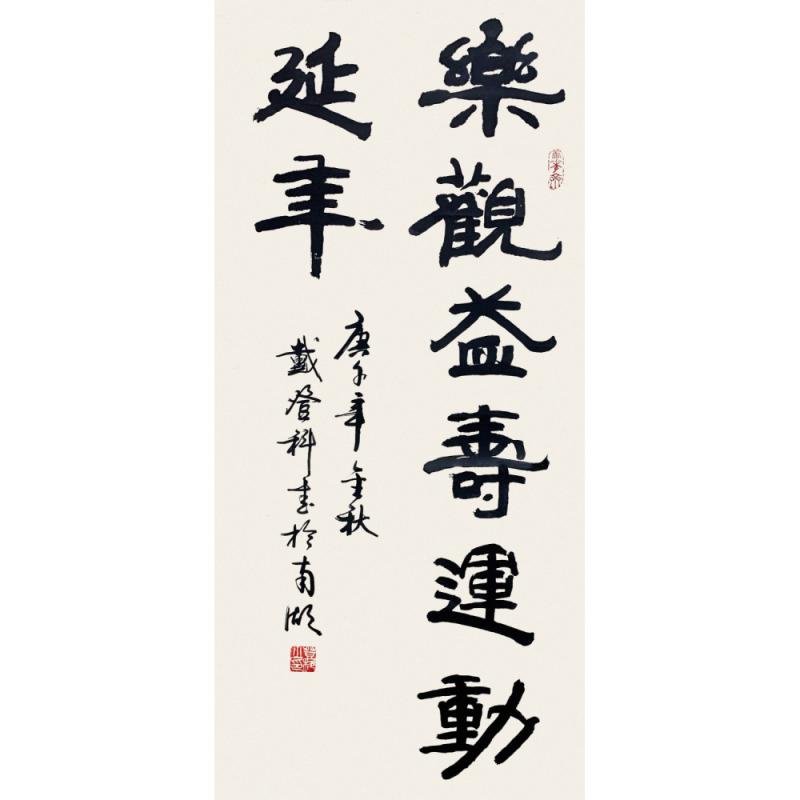 樂觀益壽運動
延年
庚子年金秋
戴登科書於南湖